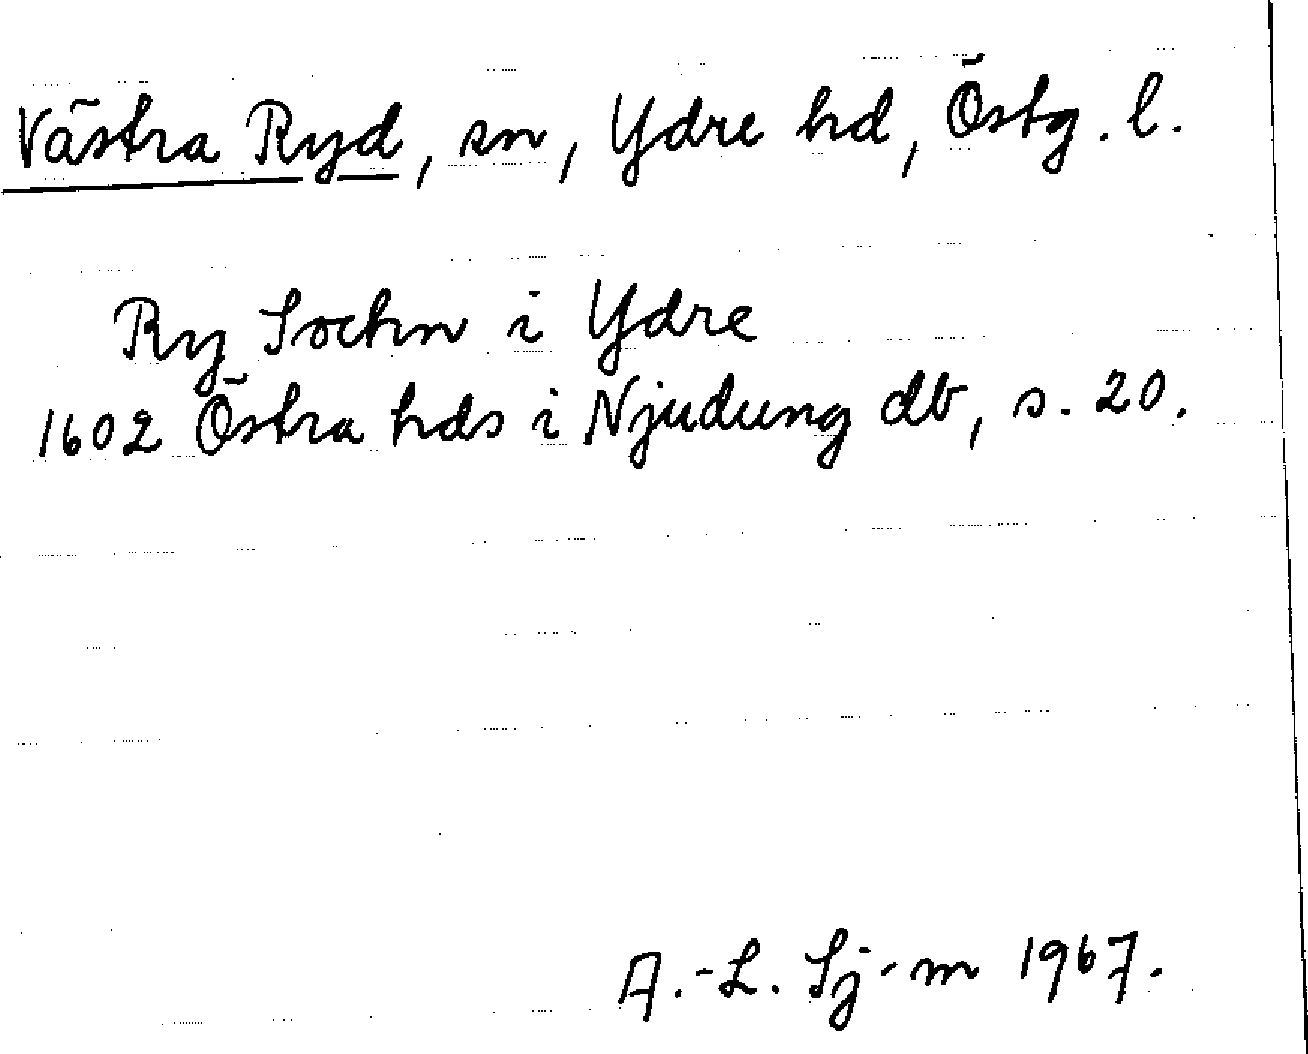 Västra Ryd, sn, Ydre hd, Östg. l.
Ry Sochn i Ydre
1602 Östra hds i Njudung db, s. 20.
A.-L. Sj-m 1967.